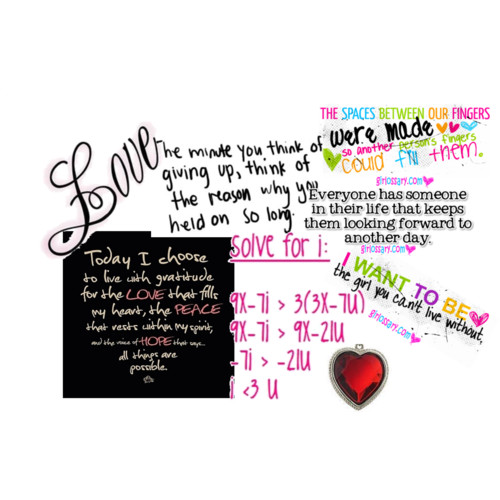 Love
The minute you think of
giving up, think of
the reason why you
held on so long.
THE SPACES BETWEEN OUR FINGERS
were made
so another person's fingers
could fill them.
girlossary.com
Everyone has someone
in their life that keeps
them looking forward to
another day.
girlossary.com
I WANT TO BE
the girl you can't live without.
girlossary.com
Today I choose
to live with gratitude
for the LOVE that fills
my heart, the PEACE
that rests within my spirit,
and the voice of HOPE that says...
all things are
possible.
Solve for i:
9X-7i > 3(3X-7U)
9X-7i > 9X-21U
-7i > -21U
i <3 U